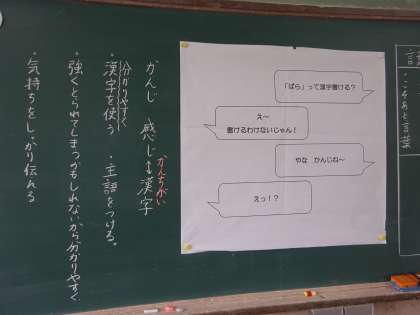 言葉
こそあど言葉
「ばら」って漢字書ける?
え〜
書けるわけないじゃん!
やな かんじね〜
えっ!?
かんじ 感じ 漢字
かんちがい
分かりやすく
・漢字を使う ・主語をつける。
・強くとられてしまうかもしれないから分かりやすく
・気持ちをしっかり伝える